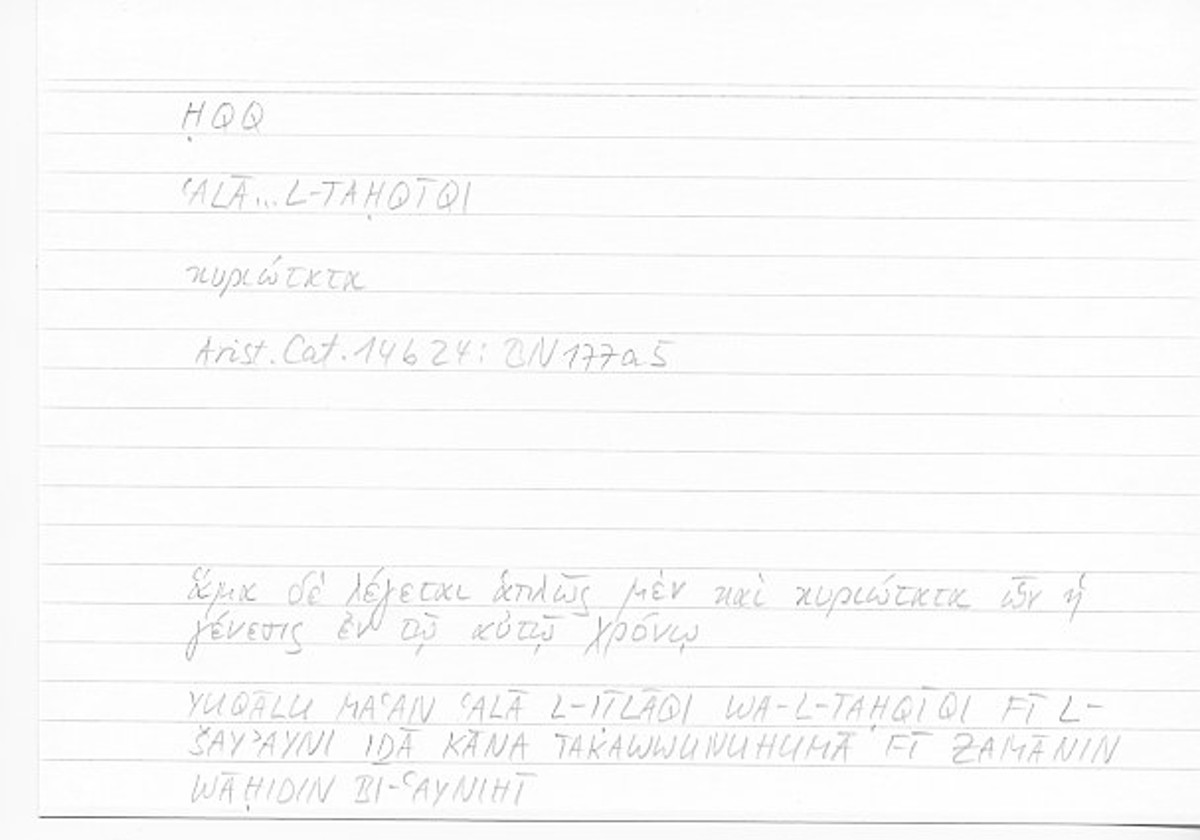 ḤQQ
ʿALĀ... L-TAḤQĪQI
κυριώτατα
Arist. Cat. 14b24: ZN 177a5
ἅμα δὲ λέγεται ἁπλῶς μὲν καὶ κυριώτατα ὧν ἡ
γένεσις ἐν τῷ αὐτῷ χρόνῳ
YUQĀLU MAʿAN ʿALĀ L-IṬLĀQI WA-L-TAḤQĪQI FĪ L-
ŠAYʾAYNI IḎĀ KĀNA TAKAWWUNUHUMĀ FĪ ZAMĀNIN
WĀḤIDIN BI-ʿAYNIHĪ